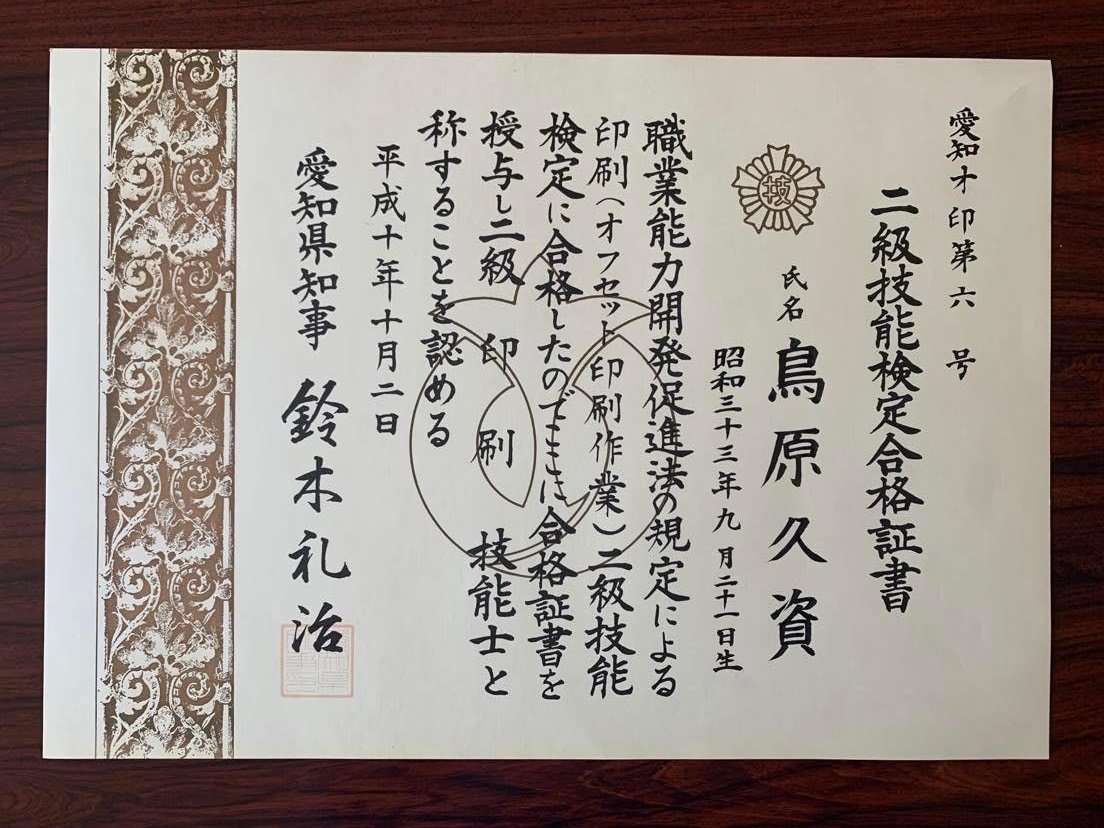 愛知オ印第六号
二級技能検定合格証書
技
氏名 鳥原久資
昭和三十三年九月二十一日生
職業能力開発促進法の規定による
印刷(オフセット印刷作業)二級技能
検定に合格したのでここに合格証書を
授与し二級 印刷 技能士と
称することを認める
平成十年十月二日
愛知県知事 鈴木礼治